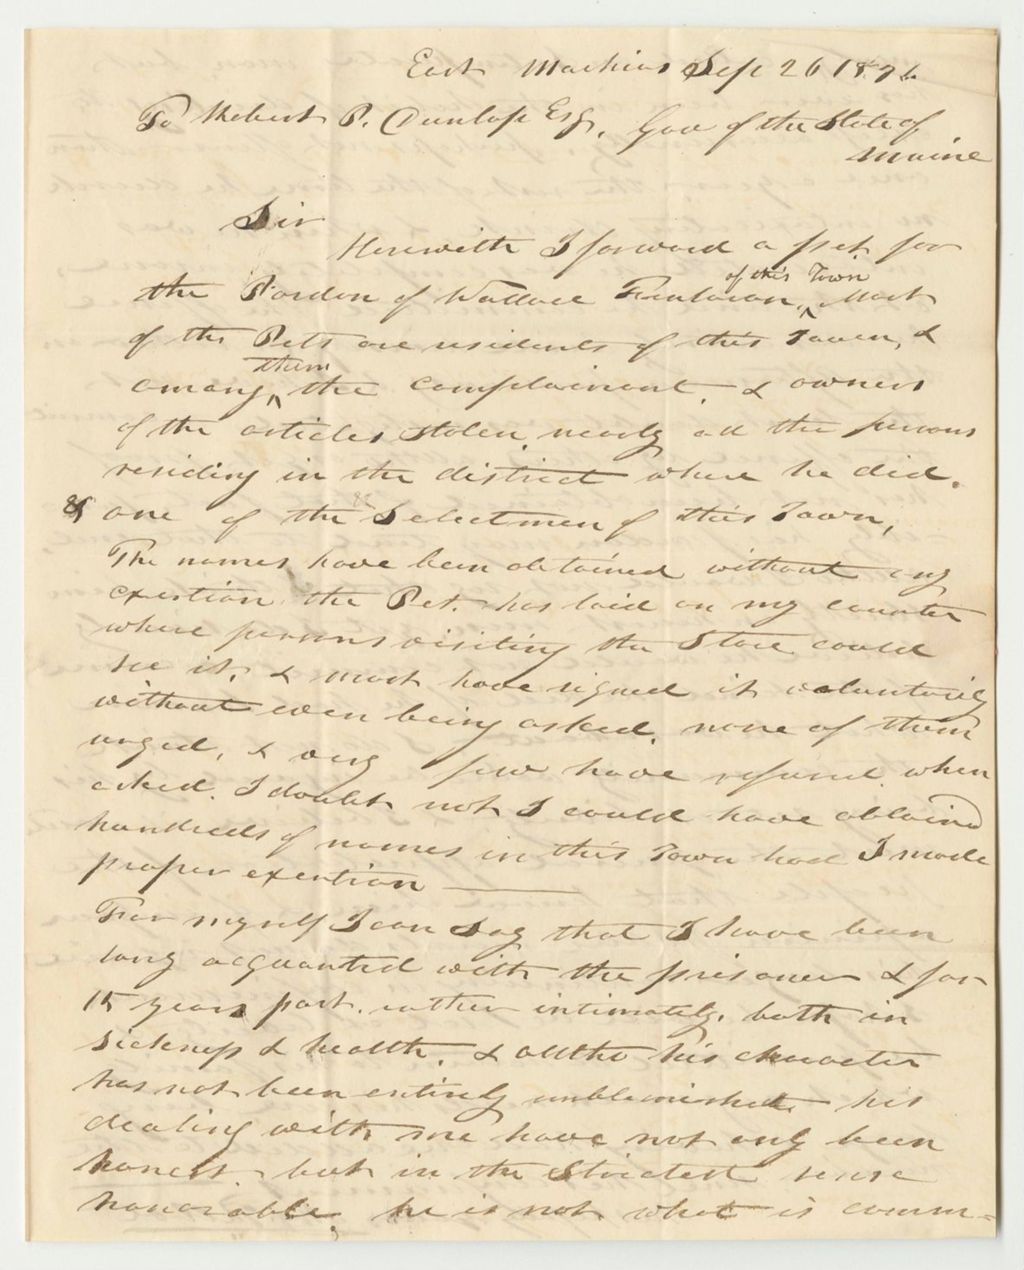 East Machias Sep 26 1836
To Robert P. Dunlap Esq, Gov of the State of
Maine
Sir
Herewith I forward a pet for
of this Town
the Pardon of Wallace Fenlason, Most
of the Petts are residents of this Town, &
them
among, the complainent. & owners
of the articles stolen. nearly all the persons
residing in the district where he did.
& one of the Selectmen of this Town,
The names have been obtained without any
exertion. the Pet. has laid on my counter
where persons visiting the Store could
see it, & most have signed it voluntarily
without even being asked. none of them
urged, & very few have refused when
asked. I doubt not I could have obtained
hundreds of names in this Town had I made
proper exertion —
For myself I can say that I have been
long acquanted with the prisoner & for
15 years past. rather intimately. both in
sickness & health. & alltho his character
has not been entirely unblemished. his
dealing with me have not only been
honest. but in the Strictest sense
honorable. he is not what is comm-